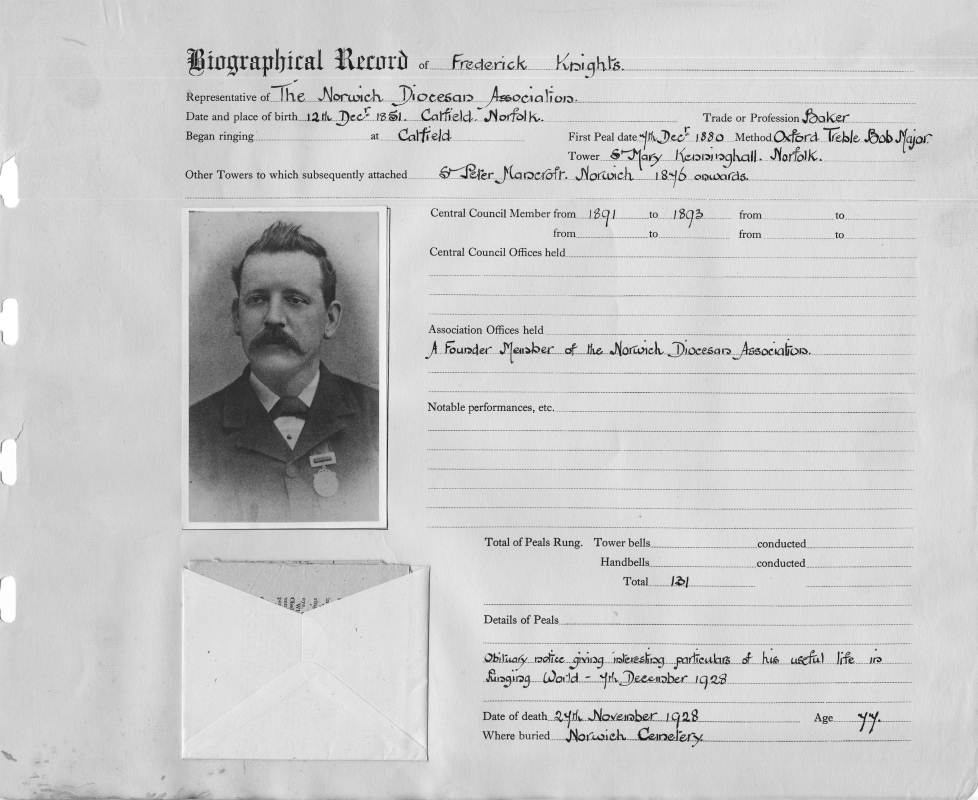 Biographical Record of Frederick Knights.
Representative of The Norwich Diocesan Association.
Date and place of birth 12th Decr 1851. Catfield. Norfolk. Trade or Profession Baker
Began ringing at Catfield First Peal date 7th Decr 1880 Method Oxford Treble Bob Major.
Tower St Mary Kenninghall. Norfolk.
Other Towers to which subsequently attached St Peter Mancroft. Norwich 1876 onwards.
Central Council Member from 1891 to 1893 from to
from to from to
Central Council Offices held
Association Offices held
A Founder Member of the Norwich Diocesan Association.
Notable performances, etc.
Total of Peals Rung. Tower bells conducted
Handbells conducted
Total 131
Details of Peals
Obituary notice giving interesting particulars of his useful life in
Ringing World - 7th December 1928
Date of death 27th November 1928 Age 77.
Where buried Norwich Cemetery.